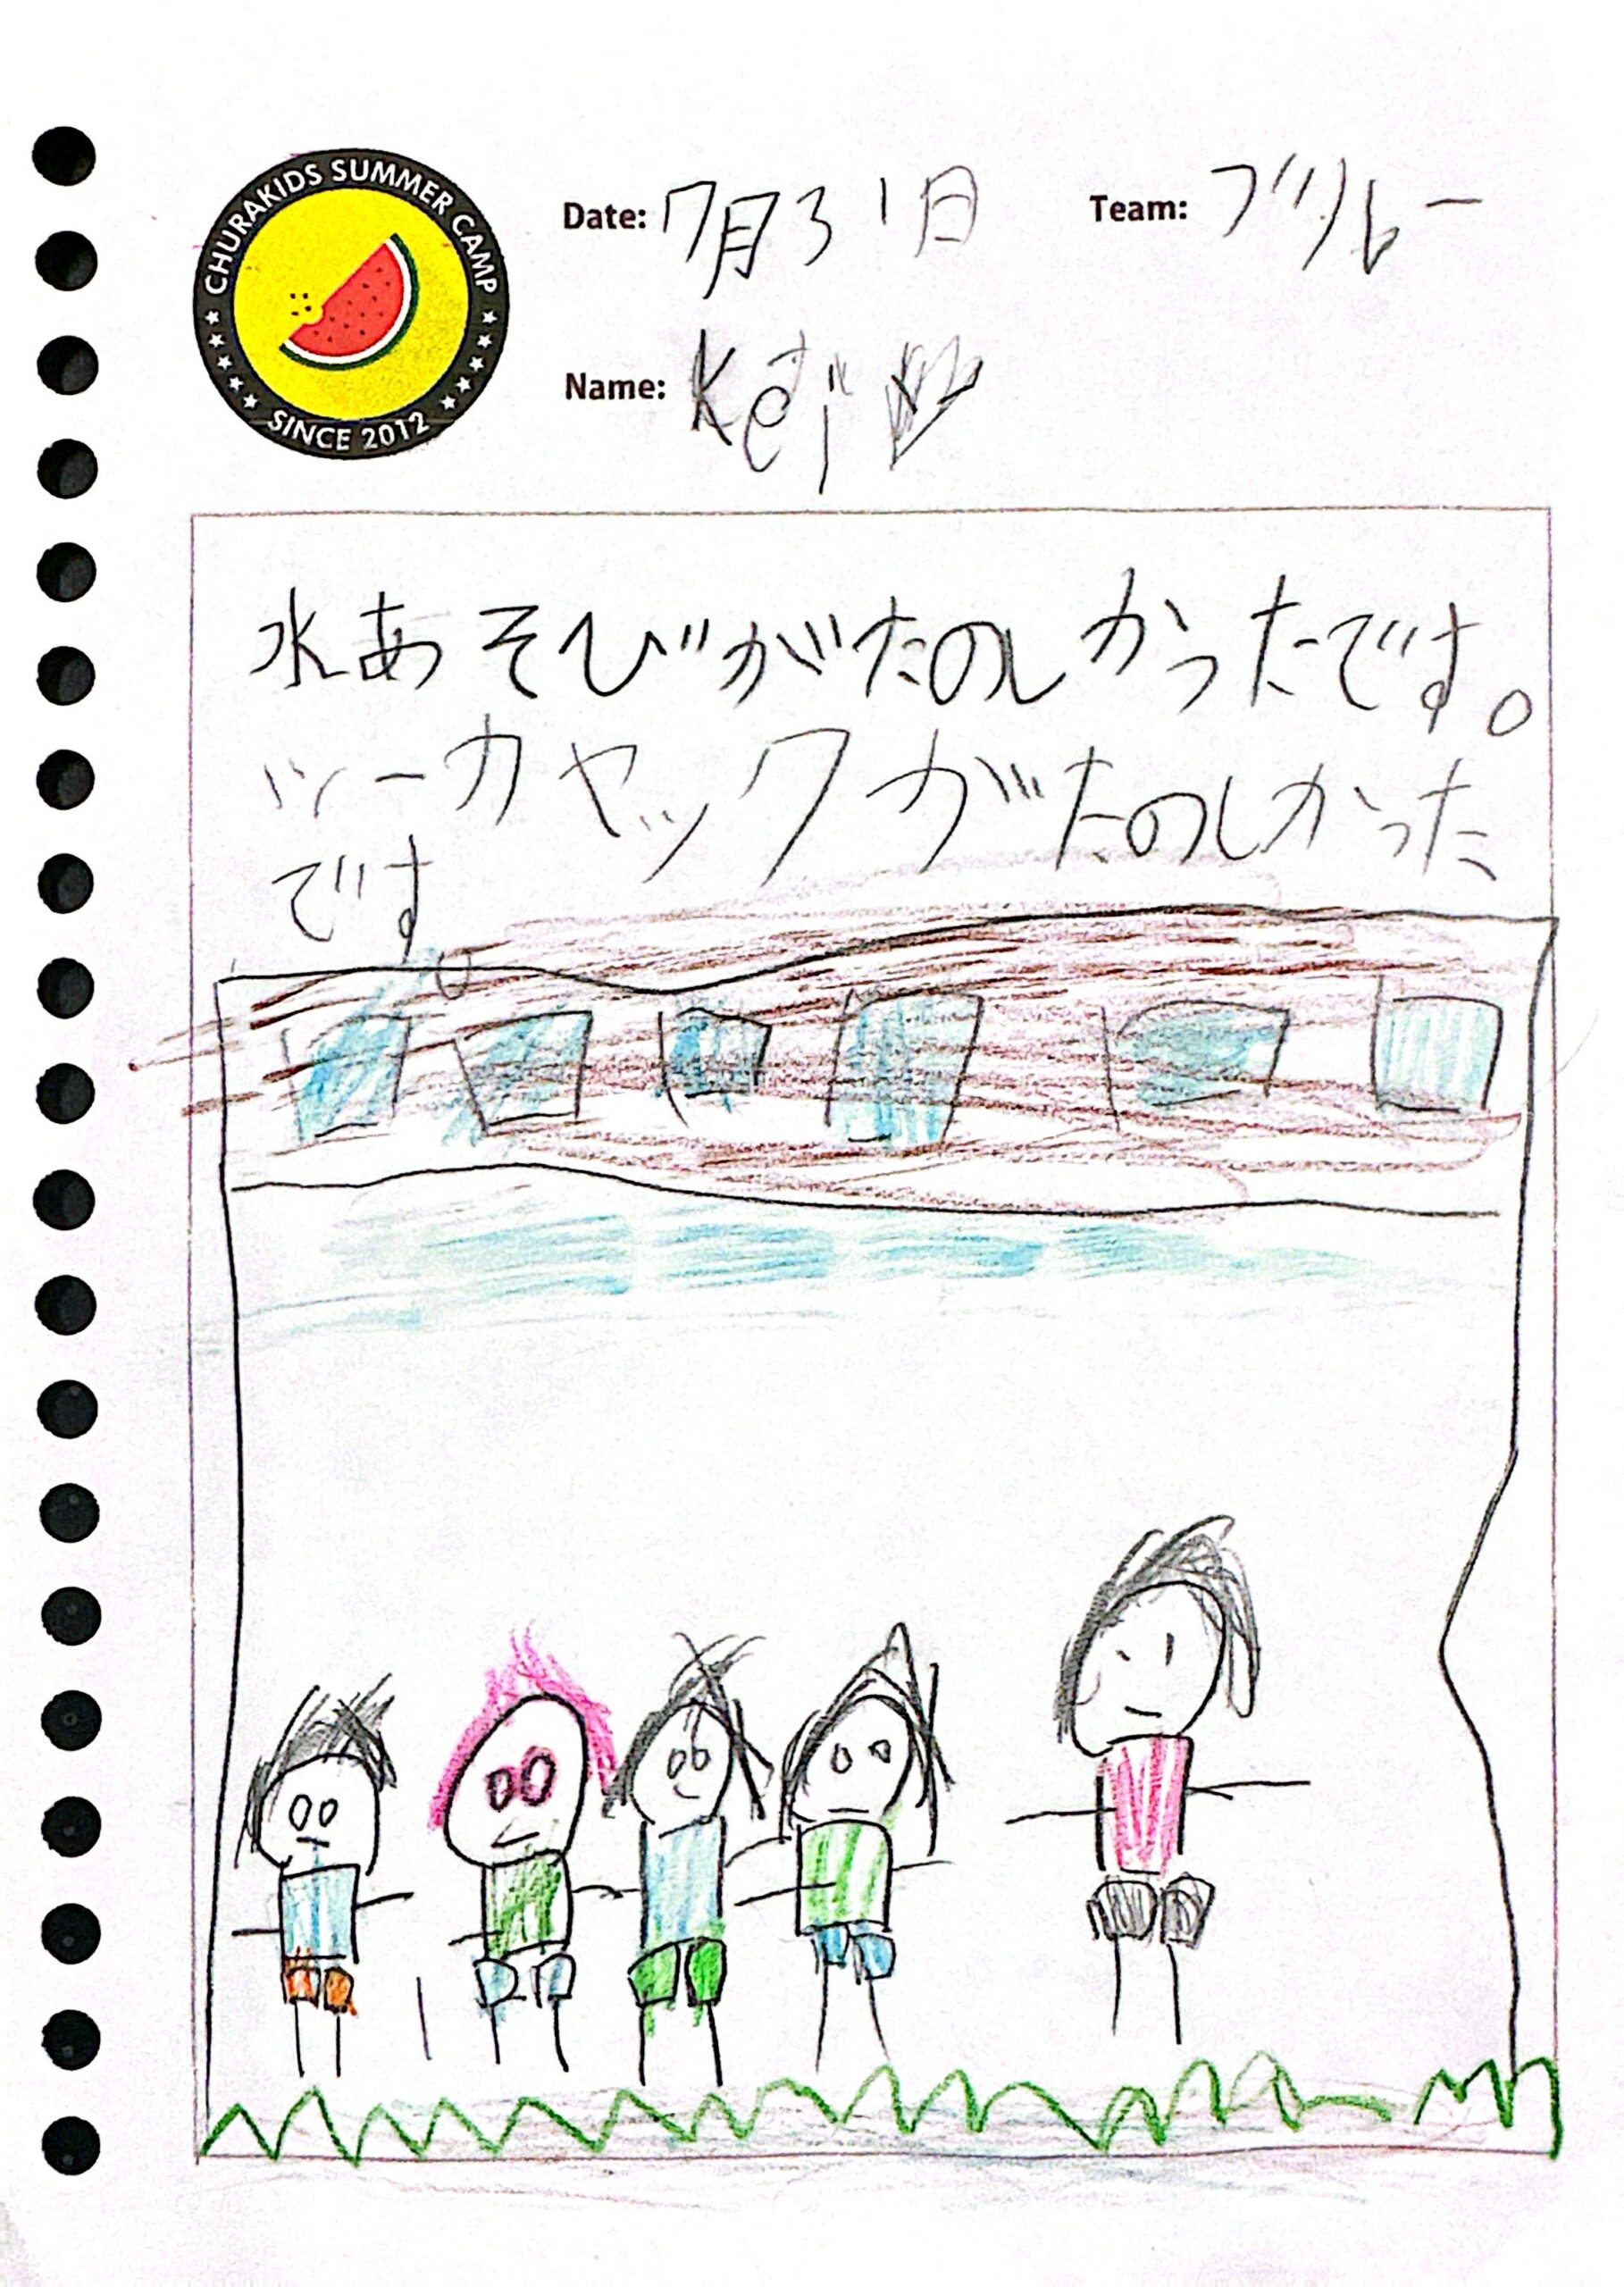 CHURAKIDS SUMMER CAMP
SINCE 2012
Date: 7月31日
Team: ブルー
Name: Keiji
水あそびがたのしかったです。
シーカヤックがたのしかった
です。